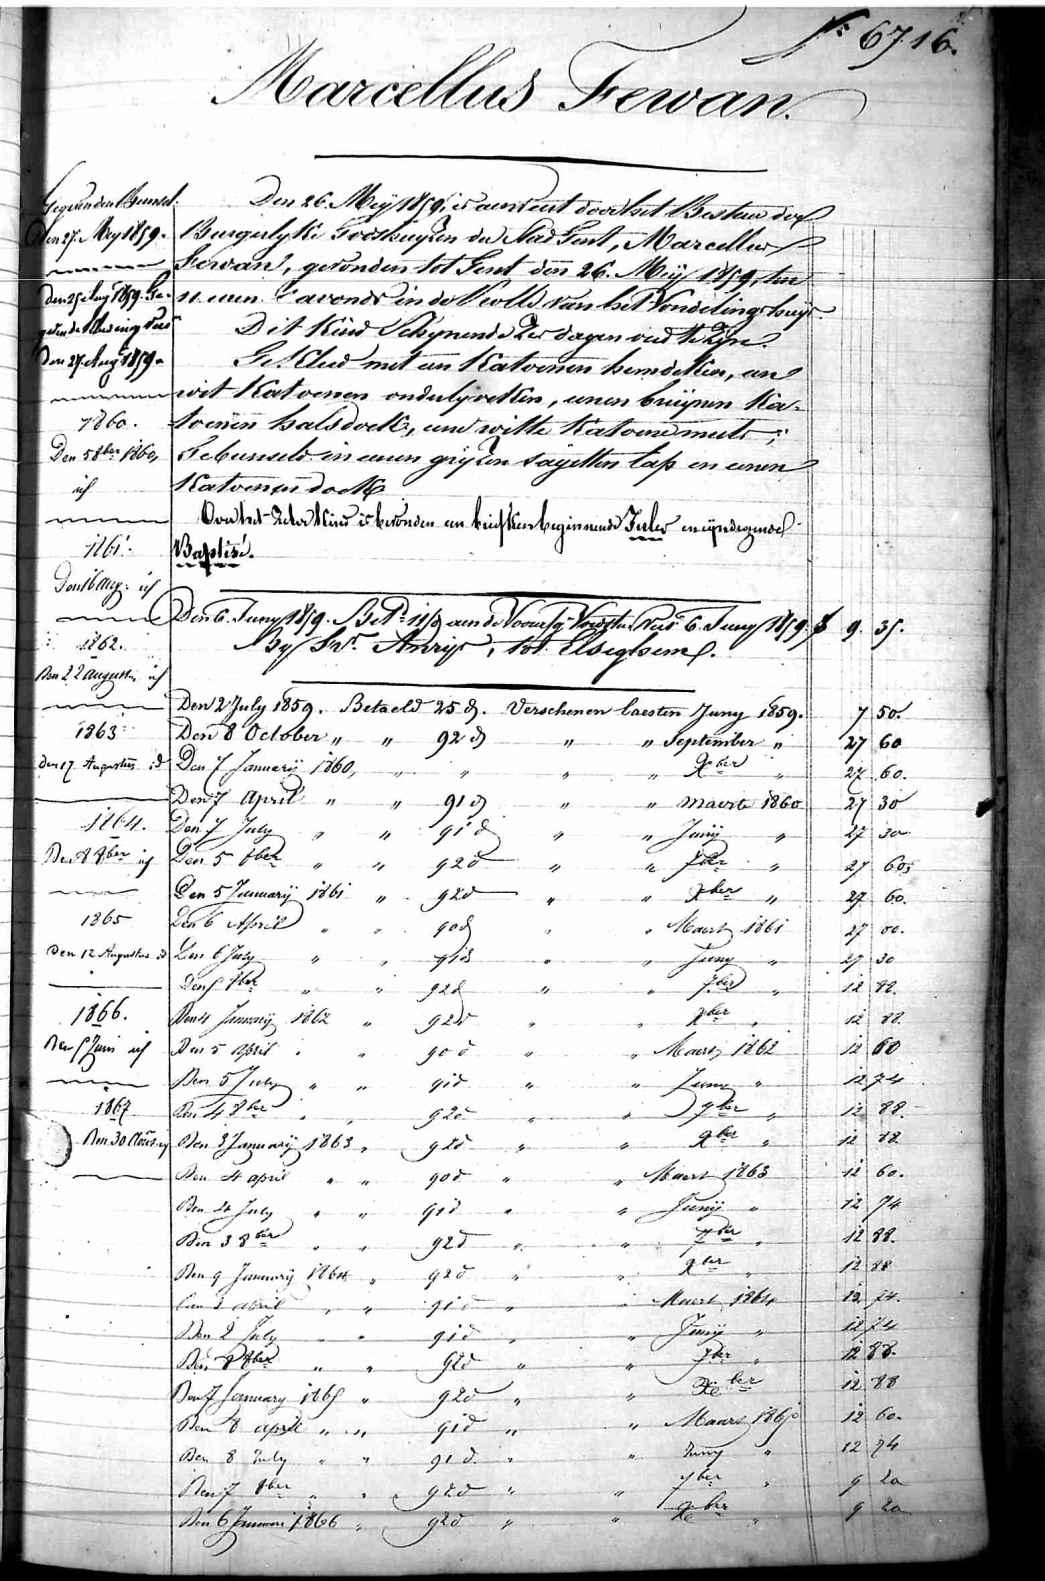 N.º 6716.
Marcellus Fewan.
Gegeven den Bunsel.
Den 27. Meÿ 1859.
Den 25 Aug 1859. Ge-
Den 27. Augt 1859.
1860.
Den 5 8ber 1860,
id
1861.
Den 16 Aug. id
1862.
Den 22 Augustus id
1863
Den 17 Augustus id
1864.
Den 8 8ber id
1865
Den 12 Augustus id
1866.
Den 5 Juni id
1867
Den 30
Den 26 Meÿ 1859, is aenveirt door het Bestuer der
Burgerlyke Godshuyzen der Stad Gent, Marcellus
Fewan, gevonden tot Gent den 26. Meÿ 1859, ten
11 uren 's avonds in de Rolle van het Vondelinghuys
Dit Kind Schynende dagen oud te Zyn.
Gekleed met een Katoenen hemdeken, een
wit Katoenen onderlyveken, eenen bruynen Ka-
toenen halsdoek, eene witte Katoene muts;
Gebunseld in eenen gryzen sayetten lap en eenen
Katoenen doek
Oon het Zelve Kind is bevonden een briefken beginnende Inler en eyndigende
Baptisé.
Den 6. Juny 1859. Bet. aen de Voedster 6. Juny 1859. 9. 35.
By Snr. Anrys, tot Elseghem.
Den 2 July 1859. Betaeld 25 d. Verschenen laesten Juny 1859. 7 50.
Den 8 October " " 92 d " " September " 27 60
Den 7 Januarÿ 1860, " " " " Xber " 27 60.
Den 7 April " " 91 d " " maerte 1860 27 30
Den 7 July " " 91 d " " Junÿ " 27 30
Den 5 8ber " " 92 d " " 7ber " 27 60
Den 5 Januarÿ 1861 " 92 d " " Xber " 27 60.
Den 6 April " " 90 d " " Maert 1861 27 00.
Den 6 July " " 91 d " " Juny " 27 30
Den 5 8ber " " 92 d " " 7ber " 12 88.
Den 4 Januarÿ 1862 " 92 d " " Xber " 12 88.
Den 5 April " " 90 d " " Maert 1862 12 60
Den 5 July " " 91 d " " Juny " 12 74
Den 4 8ber " " 92 d " " 7ber " 12 88.
Den 3 Januarÿ 1863 " 92 d " " Xber " 12 88
Den 4 april " " 90 d " " Maert 1863 12 60.
Den 4 July " " 91 d " " Junÿ " 12 74
Den 3 8ber " " 92 d " " 7ber " 12 88.
Den 9 Januarÿ 1864 " 92 d " " Xber " 12 88
Den 2 april " " 91 d " " Maert 1864 12 74.
Den 2 July " " 91 d " " Junÿ " 12 74
Den 8 8ber " " 92 d " " 7ber " 12 88.
Den 7 January 1865 " 92 d " " Xber " 12 88
Den 8 april " " 91 d " " Maart 1865 12 60.
Den 8 July " " 91 d. " " Juny " 12 74
Den 7 8ber " " 92 d " " 7ber " 9 20
Den 6 Januari 1866 " 92 d " " Xber " 9 20